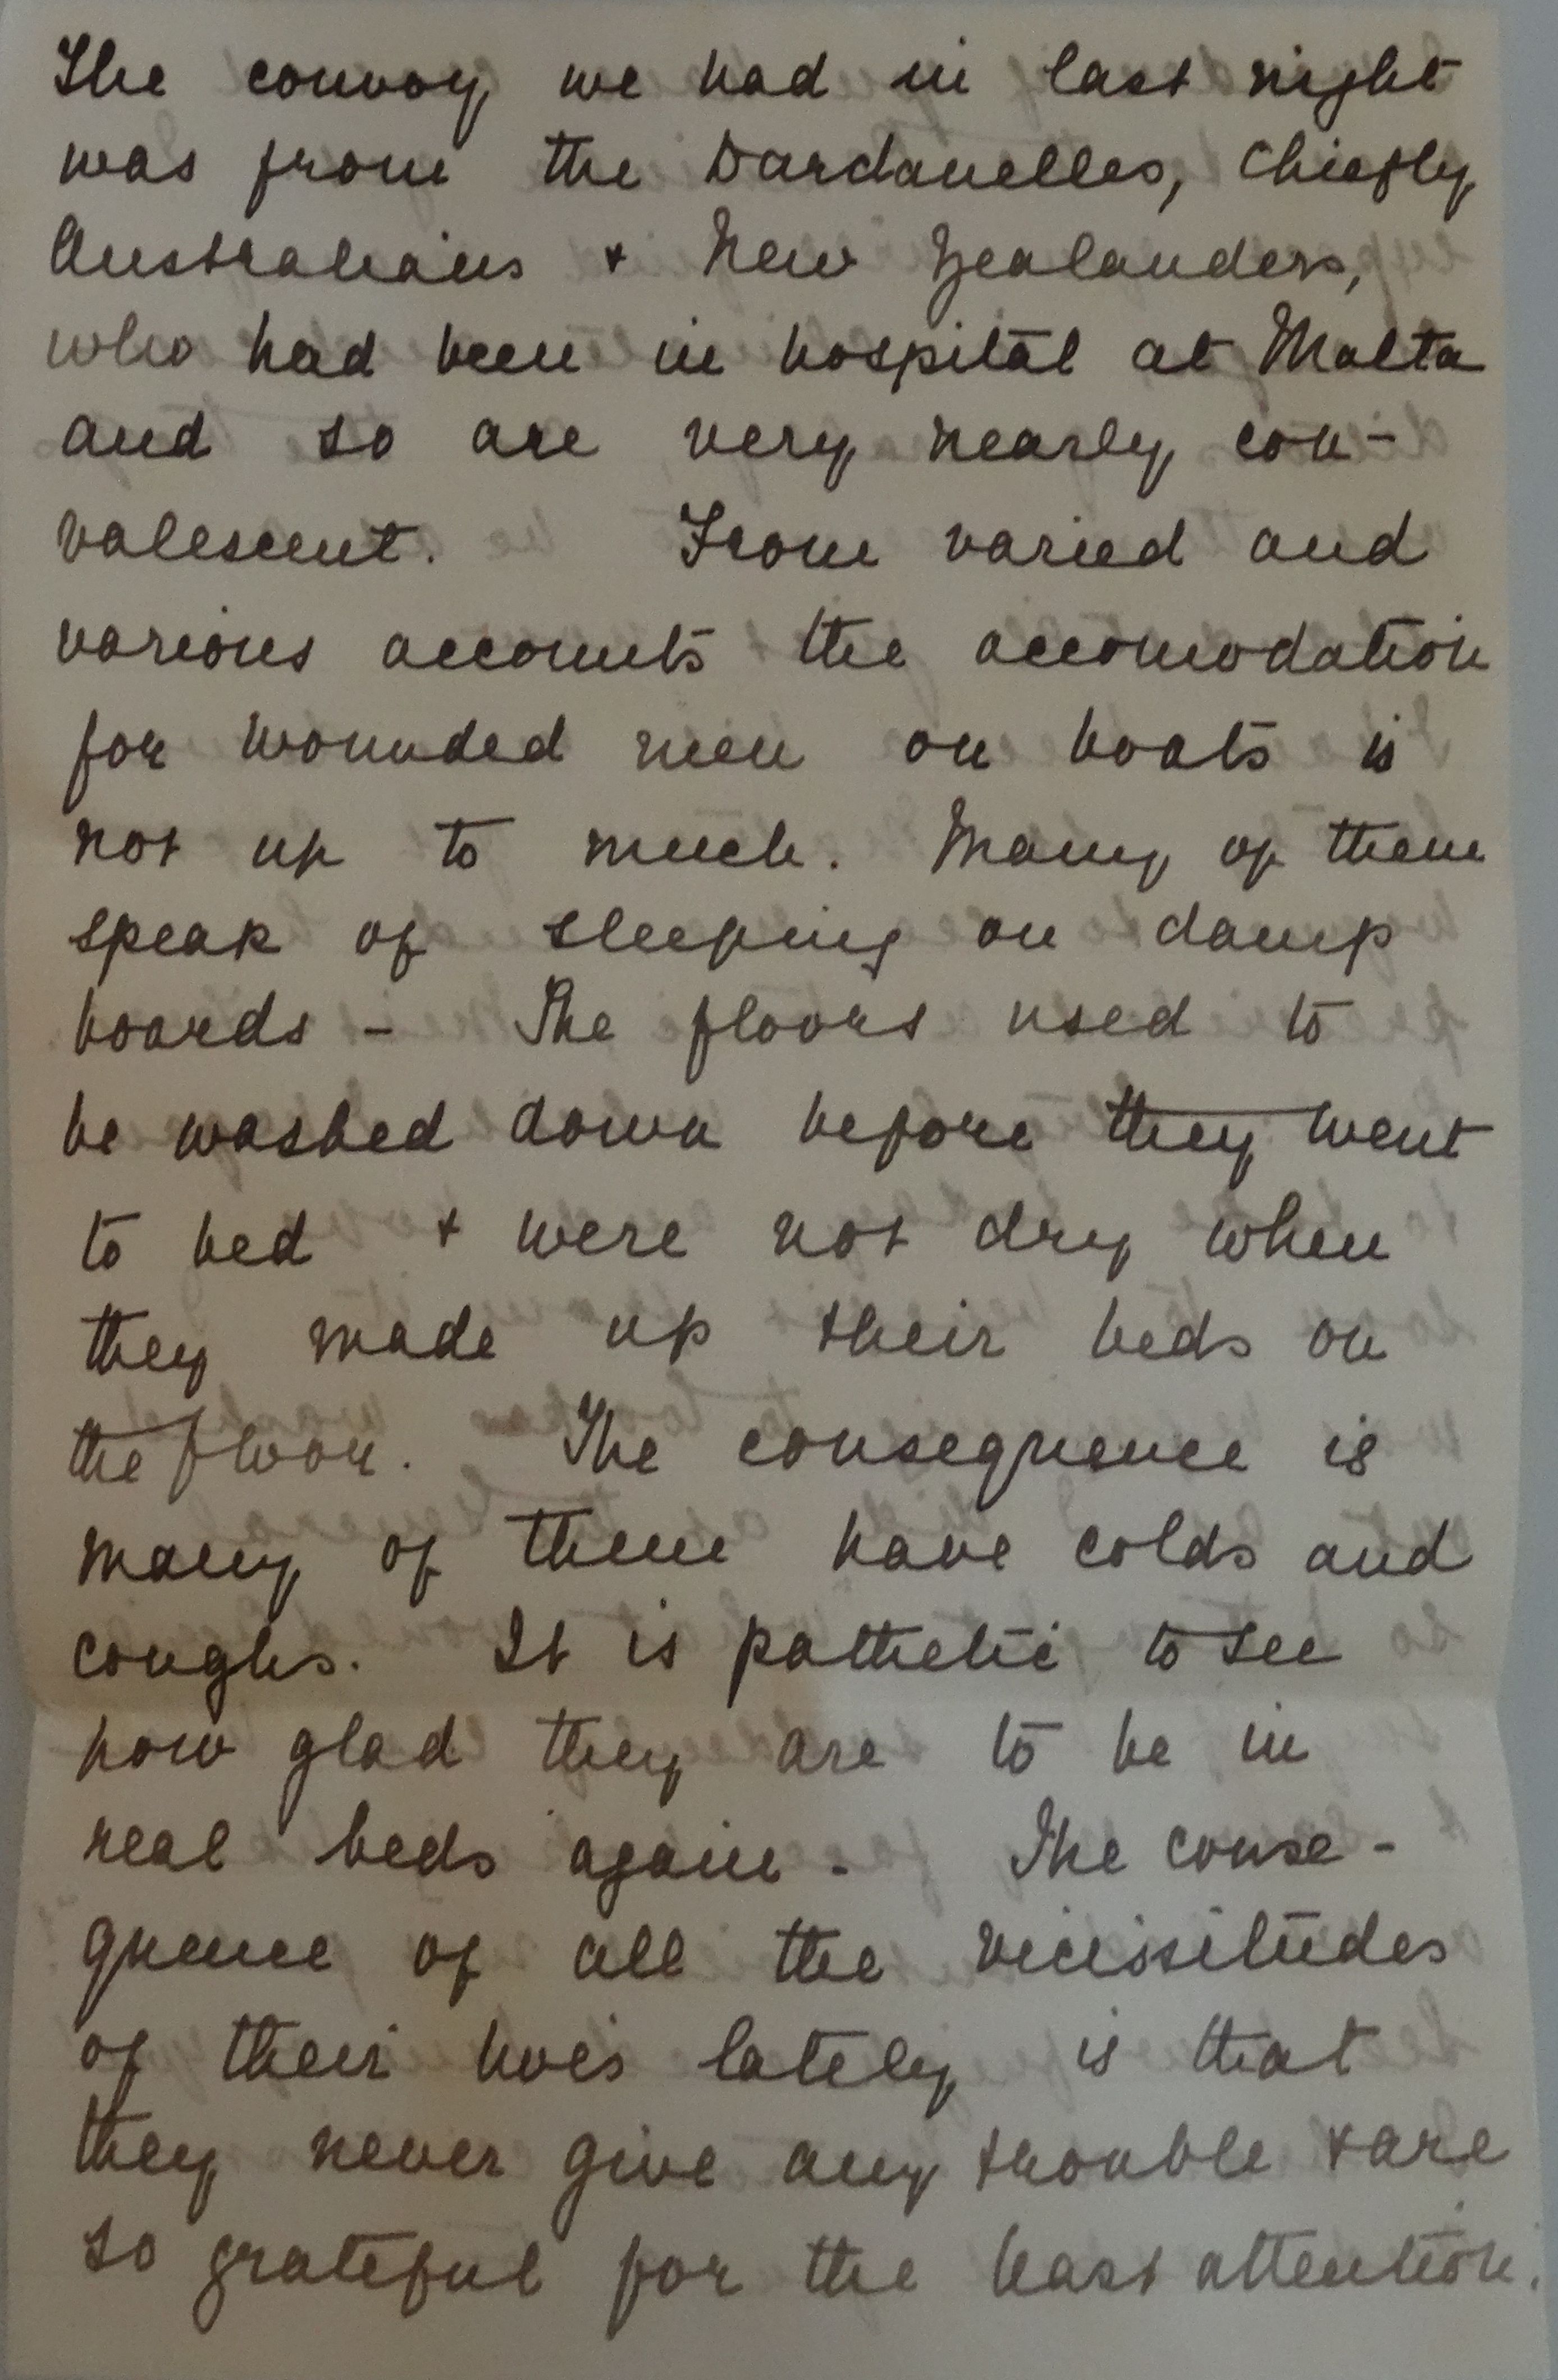 The convoy we had in last night
was from the Dardanelles, chiefly
Australians + New Zealanders,
who had been in hospital at Malta
and so are very nearly con-
valescent. From varied and
various accounts the accomodation
for wounded men on boats is
not up to much. Many of them
speak of sleeping on damp
boards - The floors used to
be washed down before they went
to bed + were not dry when
they made up their beds on
the floor. The consequence is
many of them have colds and
coughs. It is pathetic to see
how glad they are to be in
real beds again - The conse-
quence of all the vicissitudes
of their lately is that
they never give any trouble + are
so grateful for the least attention.